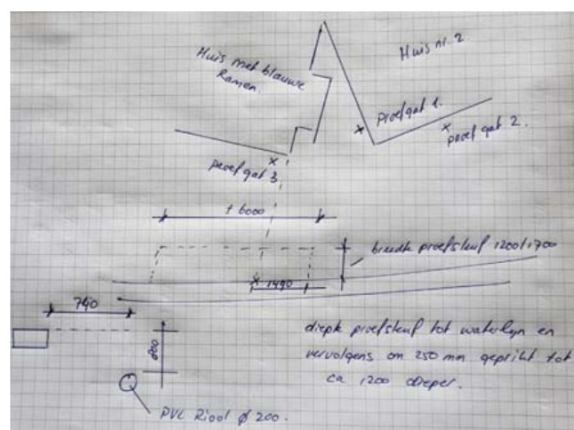 Huis nr. 2
Huis met blauwe
Ramen.
proefgat 1.
proef gat 2.
proef gat 3
± 6000
breedte proefsleuf 1200/1700
1490
740
800
diepte proefsleuf tot waterlijn en
vervolgens om 250 mm geprikt tot
ca 1200 dieper.
PVC Riool ø 200.